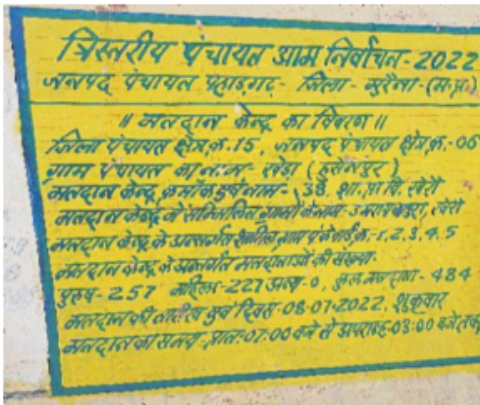 त्रिस्तरीय पंचायत आम निर्वाचन-2022
जनपद पंचायत पहाडगढ- जिला- मुरैना-(म.प्र.)
॥ मतदान केन्द्र का विवरण ॥
जिला पंचायत क्षेत्र.क्र. 15, जनपद पंचायत क्षेत्र.क्र.-06
ग्राम पंचायत का नाम- खेडा
मतदान केन्द्र क्रमांक एवं नाम- 38, शा.प्रा.वि. खेरो
मतदान केन्द्र में सम्मिलित ग्रामों के नाम- खेरो
मतदान केन्द्र के अन्तर्गत शामिल ग्राम पं. के वार्ड क्र.-1,2,3,4,5
मतदान केन्द्र के अन्तर्गत मतदाताओं की संख्या-
पुरुष-257 महिला-227 अन्य-0, कुल मतदाता-484
मतदान की तारीख एवं दिवस-08-07-2022, शुक्रवार
मतदान का समय-प्रातः07:00 बजे से अपरान्ह-03:00 बजे तक